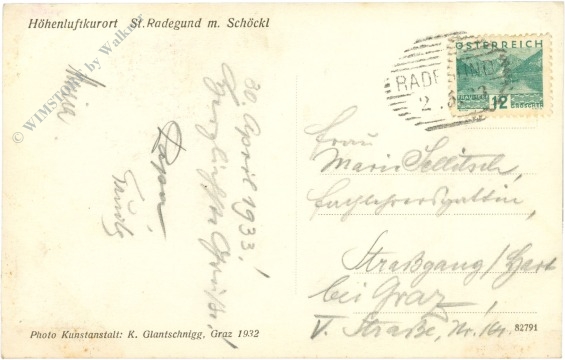 Höhenluftkurort St. Radegund m. Schöckl
© WIMSTORE by Walkner
30. April 1933!
Herzlichste Grüße!
ÖSTERREICH
12
RADEGUND
Frau
Marie Sellitsch,
Fachlehrersgattin,
Straßgang/Hart
bei Graz,
V. Straße, Nr.
Photo Kunstanstalt: K. Glantschnigg, Graz 1932
82791